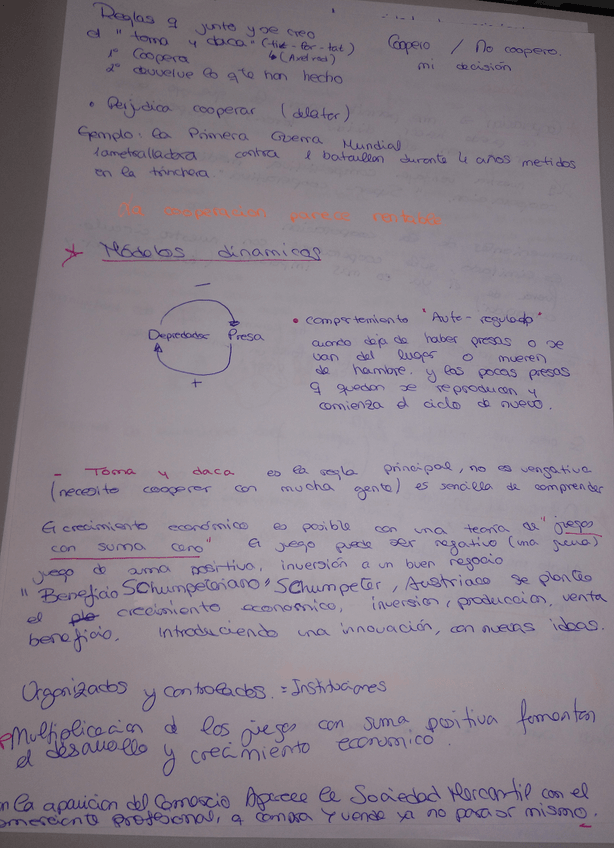 Reglas q junto y se creo
el "toma y daca" (tit-for-tat)
↳ (Axelrod)
Coopero / No coopero.
mi decisión
1º Coopera
2º devuelve lo q te han hecho
• Perjudica cooperar (delator)
Ejemplo: la Primera Guerra Mundial
1 ametralladora contra 1 batallon durante 4 años metidos
en la trinchera.
parece rentable
* Modelos dinamicos
−
Depredador Presa
+
• comportamiento "Auto-regulado"
cuando deja de haber presas o se
van del lugar o mueren
de hambre. y las pocas presas
q quedan se reproducen y
comienza el ciclo de nuevo.
- Toma y daca es la regla principal, no es vengativa
(necesito cooperar con mucha gente) es sencilla de comprender
El crecimiento económico es posible con una teoría de "juegos
con suma cero" El juego puede ser negativo (una guerra)
juego de suma positiva, inversión a un buen negocio
"Beneficio Schumpeteriano" Schumpeter, Austriaco se planteo
el crecimiento economico, inversion, produccion, venta
beneficio. Introduciendo una innovación, con nuevas ideas.
Organizados y controlados. = Instituciones
Multiplicacion de los juegos con suma positiva fomentan
el desarrollo y crecimiento economico.
la aparicion del Comercio Aparece la Sociedad Mercantil con el
profesional, q compra y vende ya no para sí mismo.